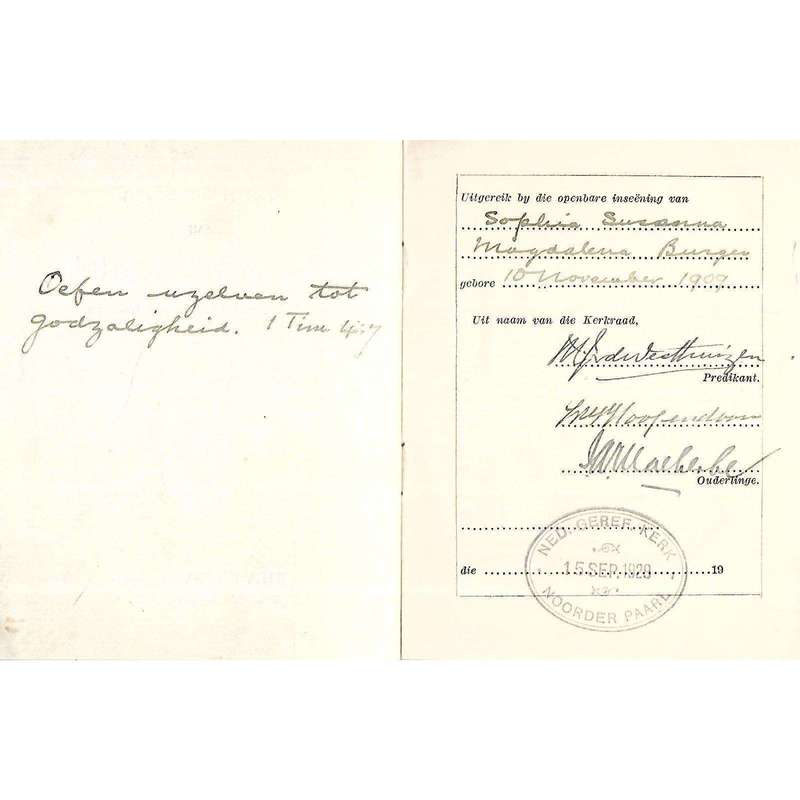 Oefen uzelven tot
godzaligheid. 1 Tim 4:7
Uitgereik by die openbare inseëning van
Sophia Susanna
Magdalena Burger
gebore 10 November 1909
Uit naam van die Kerkraad,
v d Westhuizen
Predikant.
Malherbe
Ouderlinge.
NED. GEREF. KERK
die 15 SEP. 1929 19
NOORDER PAARL